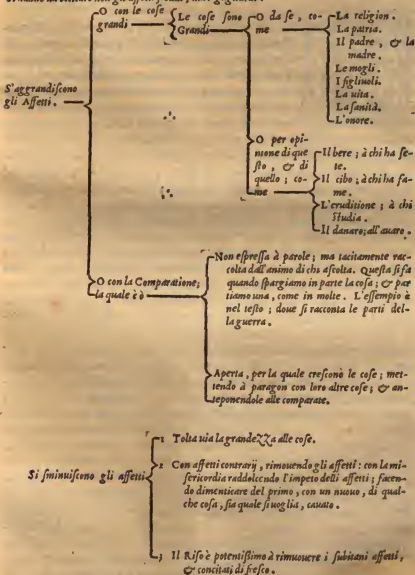 S'aggrandiſcono
gli Affetti.
O con le coſe
grandi
Le coſe ſono
Grandi
O da ſe, co-
me
La religion.
La patria.
Il padre, & la
madre.
Le mogli.
I figliuoli.
La uita.
La ſanità.
L'onore.
O per opi-
nione di que
ſto, & di
quello; co-
me
Il bere; à chi ha ſe-
te.
Il cibo; à chi ha fa-
me.
L'eruditione; à chi
ſtudia.
Il danaro; all'auaro.
O con la Comparatione;
la quale è ò
Non eſpreſſa à parole; ma tacitamente rac-
colta dall'animo di chi aſcolta. Queſta ſi fa
quando ſpargiamo in parte la coſa; & par
tiamo una, come in molte. L'eſſempio è
nel teſto; doue ſi racconta le parti del-
la guerra.
Aperta, per la quale creſcono le coſe; met-
tendo à paragon con loro altre coſe; & an-
teponendole alle comparate.
Si ſminuiſcono gli affetti
1 Tolta uia la grandezza alle coſe.
2 Con affetti contrarij, rimouendo gli affetti: con la mi-
ſericordia raddolcendo l'impeto delli affetti; facen-
do dimenticare del primo, con un nuouo, di qual-
che coſa, ſia quale ſi uoglia, cauato.
3 Il Riſo è potentiſſimo à rimuouere i ſubitani affetti,
& concitati di freſco.